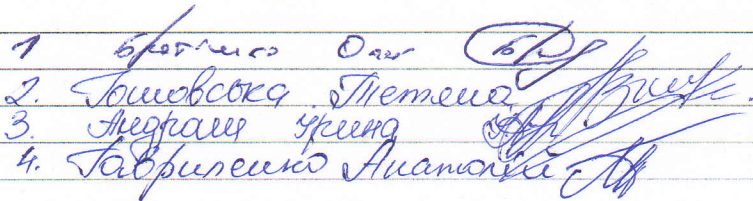 1 Братишко Олег
2. Гошовська Тетяна
3. Андраш Ірина
4. Гавриленко Анатолій